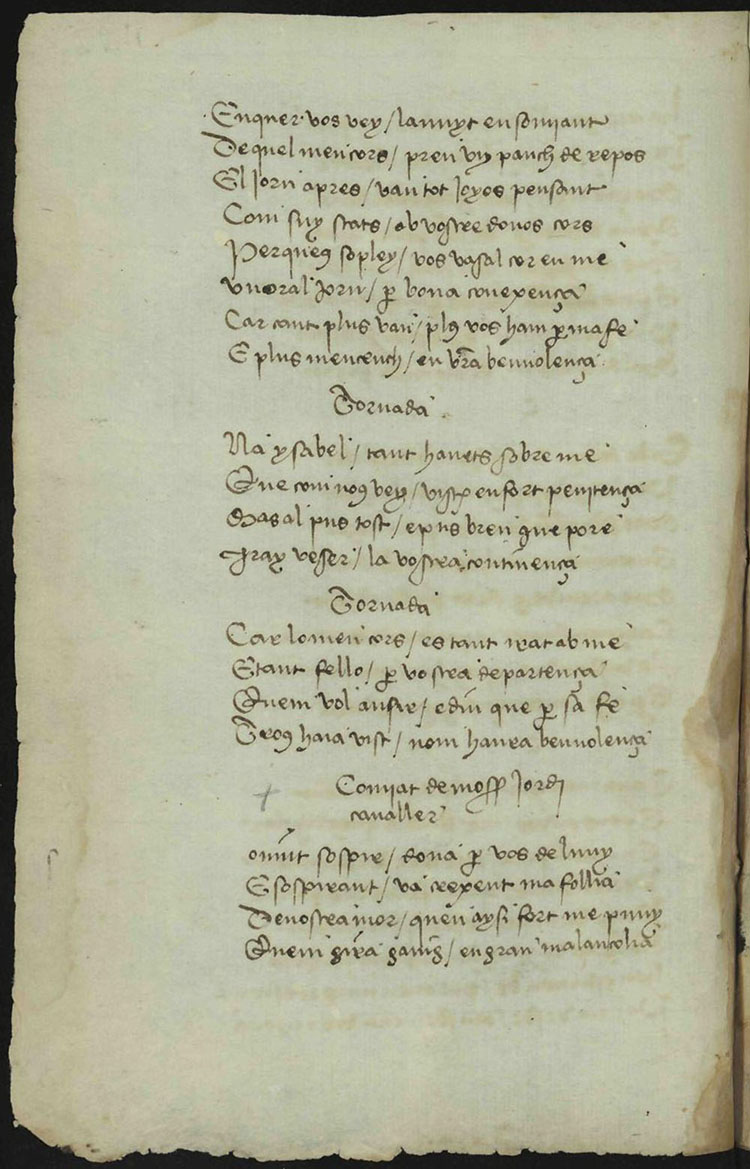 Enquer vos vey / lannyt en somiant
De quel meu cors / pren un pauch de repos
El jorn apres / vau tot joyos pensant
Com suy stats / ab vostre donos cors
Perqueus sopley / vos vasal cor en me
un oral jorn / p bona conexença
Car cant plus vau / plus vos ham p ma fe
E plus mencench / en vra benvolença
Tornada
Na ysabel / tant havets sobre me
Que com nous vey / visch en fort penitença
Mas al pus tost / e pus breu que pore
Iray veser / la vostra continença
Tornada
Car lo meu cors / es tant irat ab me
E tant fello / p vostra departença
Quem vol ausir / e diu que p sa fe
Tros haia vist / nom haura benvolença
Comiat de moss Jordi
cavaller
ovint sospir / dona p vos de luny
E sospirant / va crexent ma follia
De vostramor / quen aysi fort me puny
Quem gira gaug / en gran malanconia